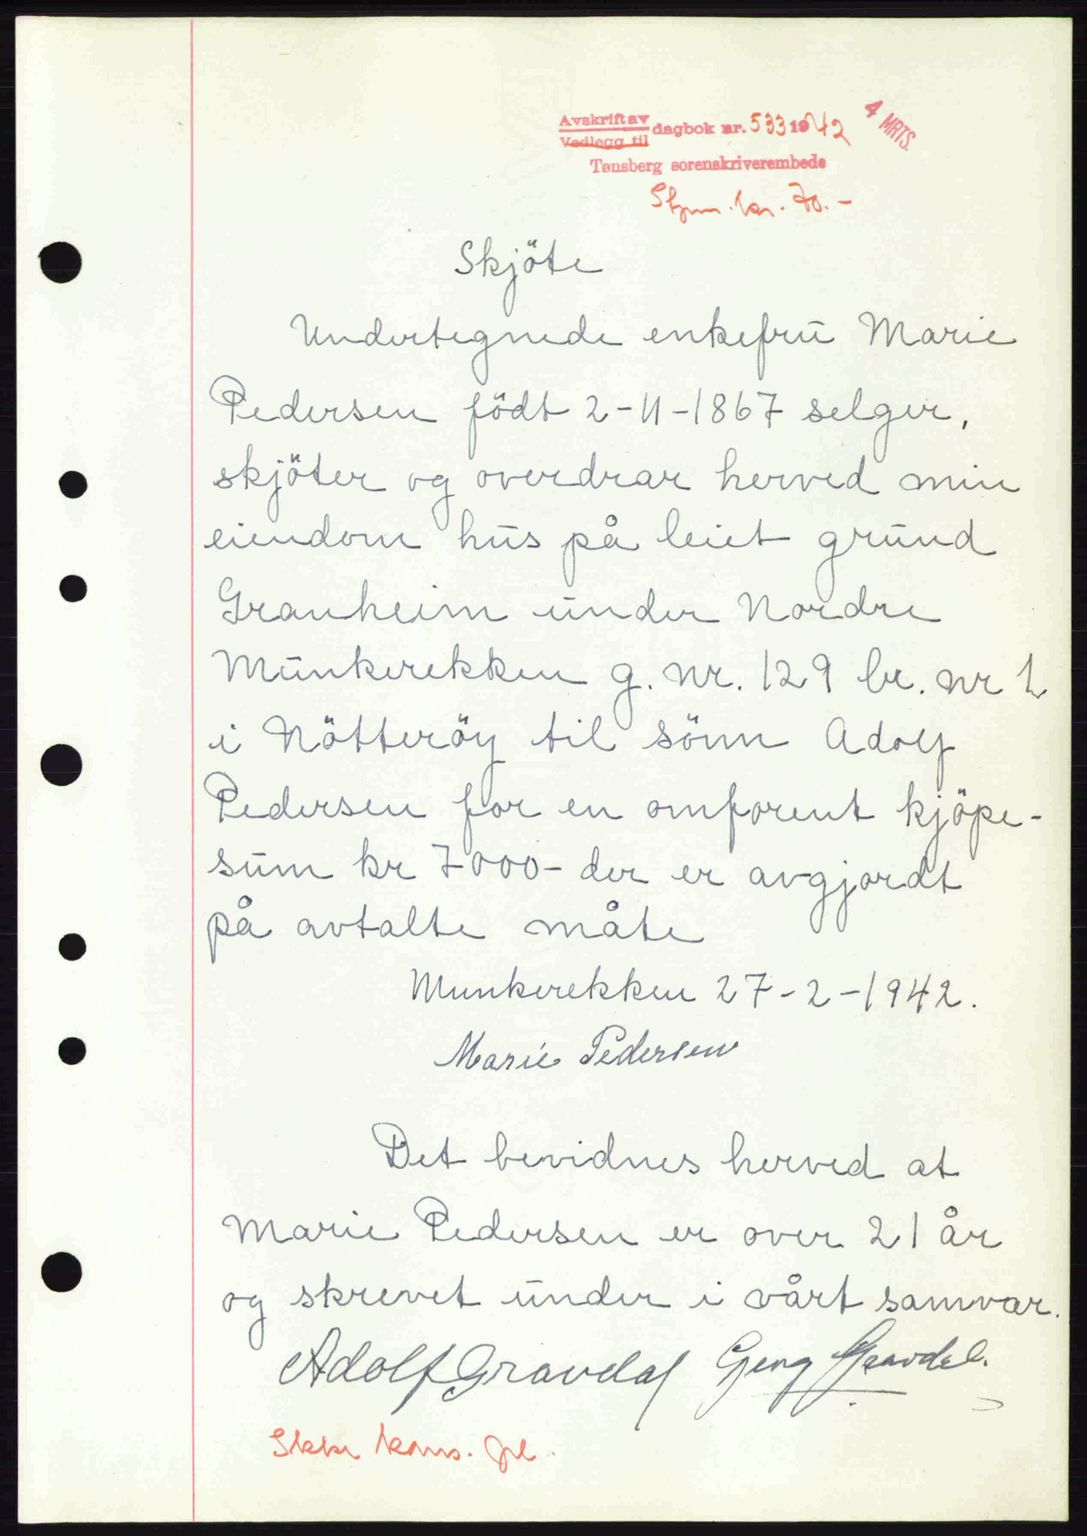 Avskrift av
Vedlegg til
dagbok nr. 533 1942
4 MRTS.
Tønsberg sorenskriverembede
Stpm. kr. 70.-
Skjöte
Undertegnede enkefru Marie
Pedersen födt 2-11-1867 selger,
skjöter og overdrar herved min
eiendom hus på leiet grund
Granheim under Nordre
Munkerekken g. nr. 129 br. nr 1
i Nötteröy til sönn Adolf
Pedersen for en omforent kjöpe-
sum kr 7000- der er avgjordt
på avtalte måte
Munkerekken 27-2-1942.
Marie Pedersen
Det bevidnes herved at
Marie Pedersen er over 21 år
og skrevet under i vårt samvær.
Adolf Gravdal Georg Gravdal.
Ikke kons.